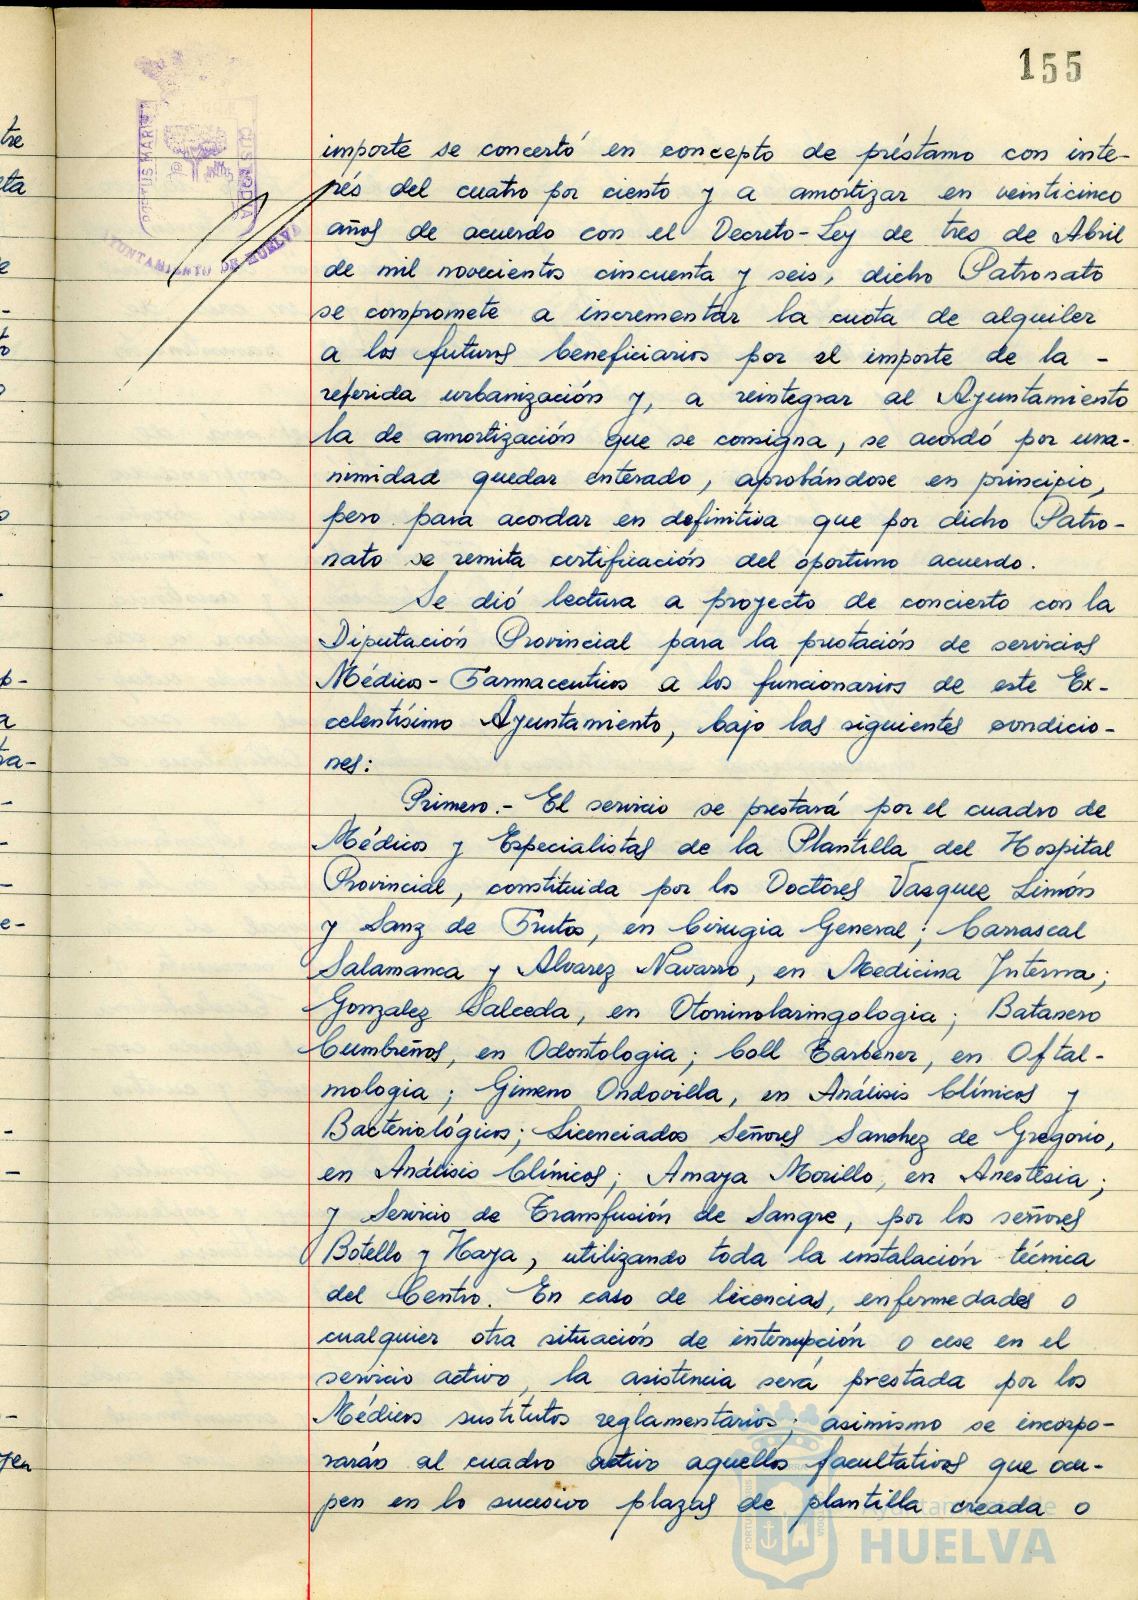 155
importe se concertó en concepto de préstamo con inte-
rés del cuatro por ciento y a amortizar en veinticinco
años de acuerdo con el Decreto-Ley de tres de Abril
de mil novecientos cincuenta y seis, dicho Patronato
se compromete a incrementar la cuota de alquiler
a los futuros beneficiarios por el importe de la -
referida urbanización y, a reintegrar al Ayuntamiento
la de amortización que se consigna, se acordó por una-
nimidad quedar enterado, aprobándose en principio,
pero para acordar en definitiva que por dicho Patro-
nato se remita certificación del oportuno acuerdo.
Se dió lectura a proyecto de concierto con la
Diputación Provincial para la prestación de servicios
Médicos-Farmaceuticos a los funcionarios de este Ex-
celentísimo Ayuntamiento, bajo las siguientes condicio-
nes:
Primero.- El servicio se prestará por el cuadro de
Médicos y Especialistas de la Plantilla del Hospital
Provincial, constituida por los Doctores Vazquez Limón
y Sanz de Frutos, en Cirugia General; Carrascal
Salamanca y Alvarez Navarro, en Medicina Interna;
Gonzalez Salceda, en Otorrinolaringologia; Batanero
Cumbreños, en Odontologia; Coll Carbener, en Oftal-
mologia; Gimeno Ondovilla, en Análisis Clínicos y
Bacteriológicos; Licenciados Señores Sanchez de Gregorio,
en Análisis Clínicos; Amaya Morillo, en Anestesia;
y Servicio de Transfusión de Sangre, por los señores
Botello y Haya, utilizando toda la instalación técnica
del Centro. En caso de licencias, enfermedades o
cualquier otra situación de interrupción o cese en el
servicio activo, la asistencia será prestada por los
Médicos sustitutos reglamentarios; asimismo se incorpo-
rarán al cuadro activo aquellos facultativos que ocu-
pen en lo sucesivo plazas de plantilla creada o
AYUNTAMIENTO DE HUELVA
PORTUS MARIS
CUSTODIA
Ayuntamiento de
HUELVA